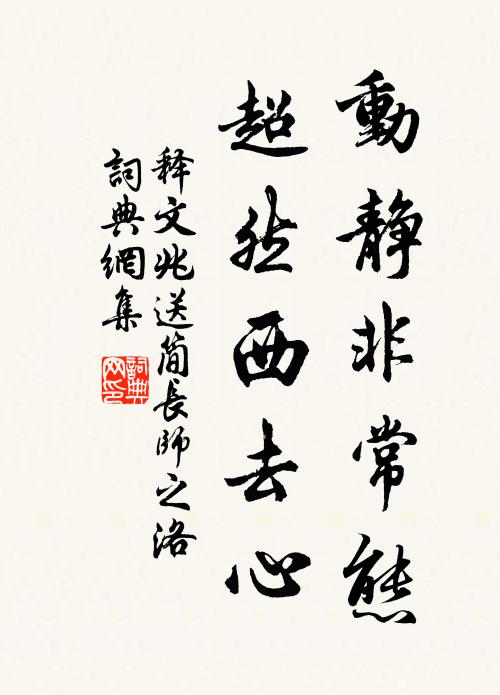 動靜非常態
超然西去心
释文兆送簡長師之洛
詞典網集
詞典網印